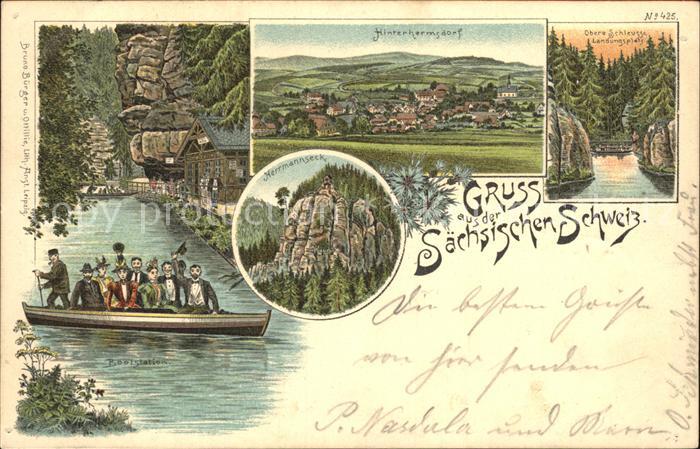 No 425.
Hinterhermsdorf
Obere Schleuse
Landungsplatz
Bruno Bürger u. Ottillie, Lith. Anst. Leipzig.
Herrmannseck
Gruss
aus der
Sächsischen Schweiz.
Bootstation
Die besten Grüße
von hier senden
P. Nasdala und